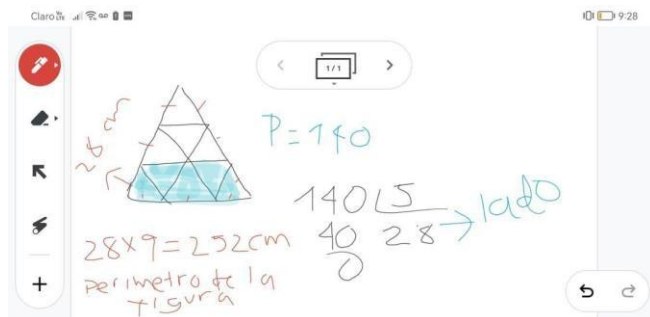 Claro
9:28
1/1
28 cm
P=140
140 5
40 28 → lado
0
28x9=252cm
perimetro de la
figura